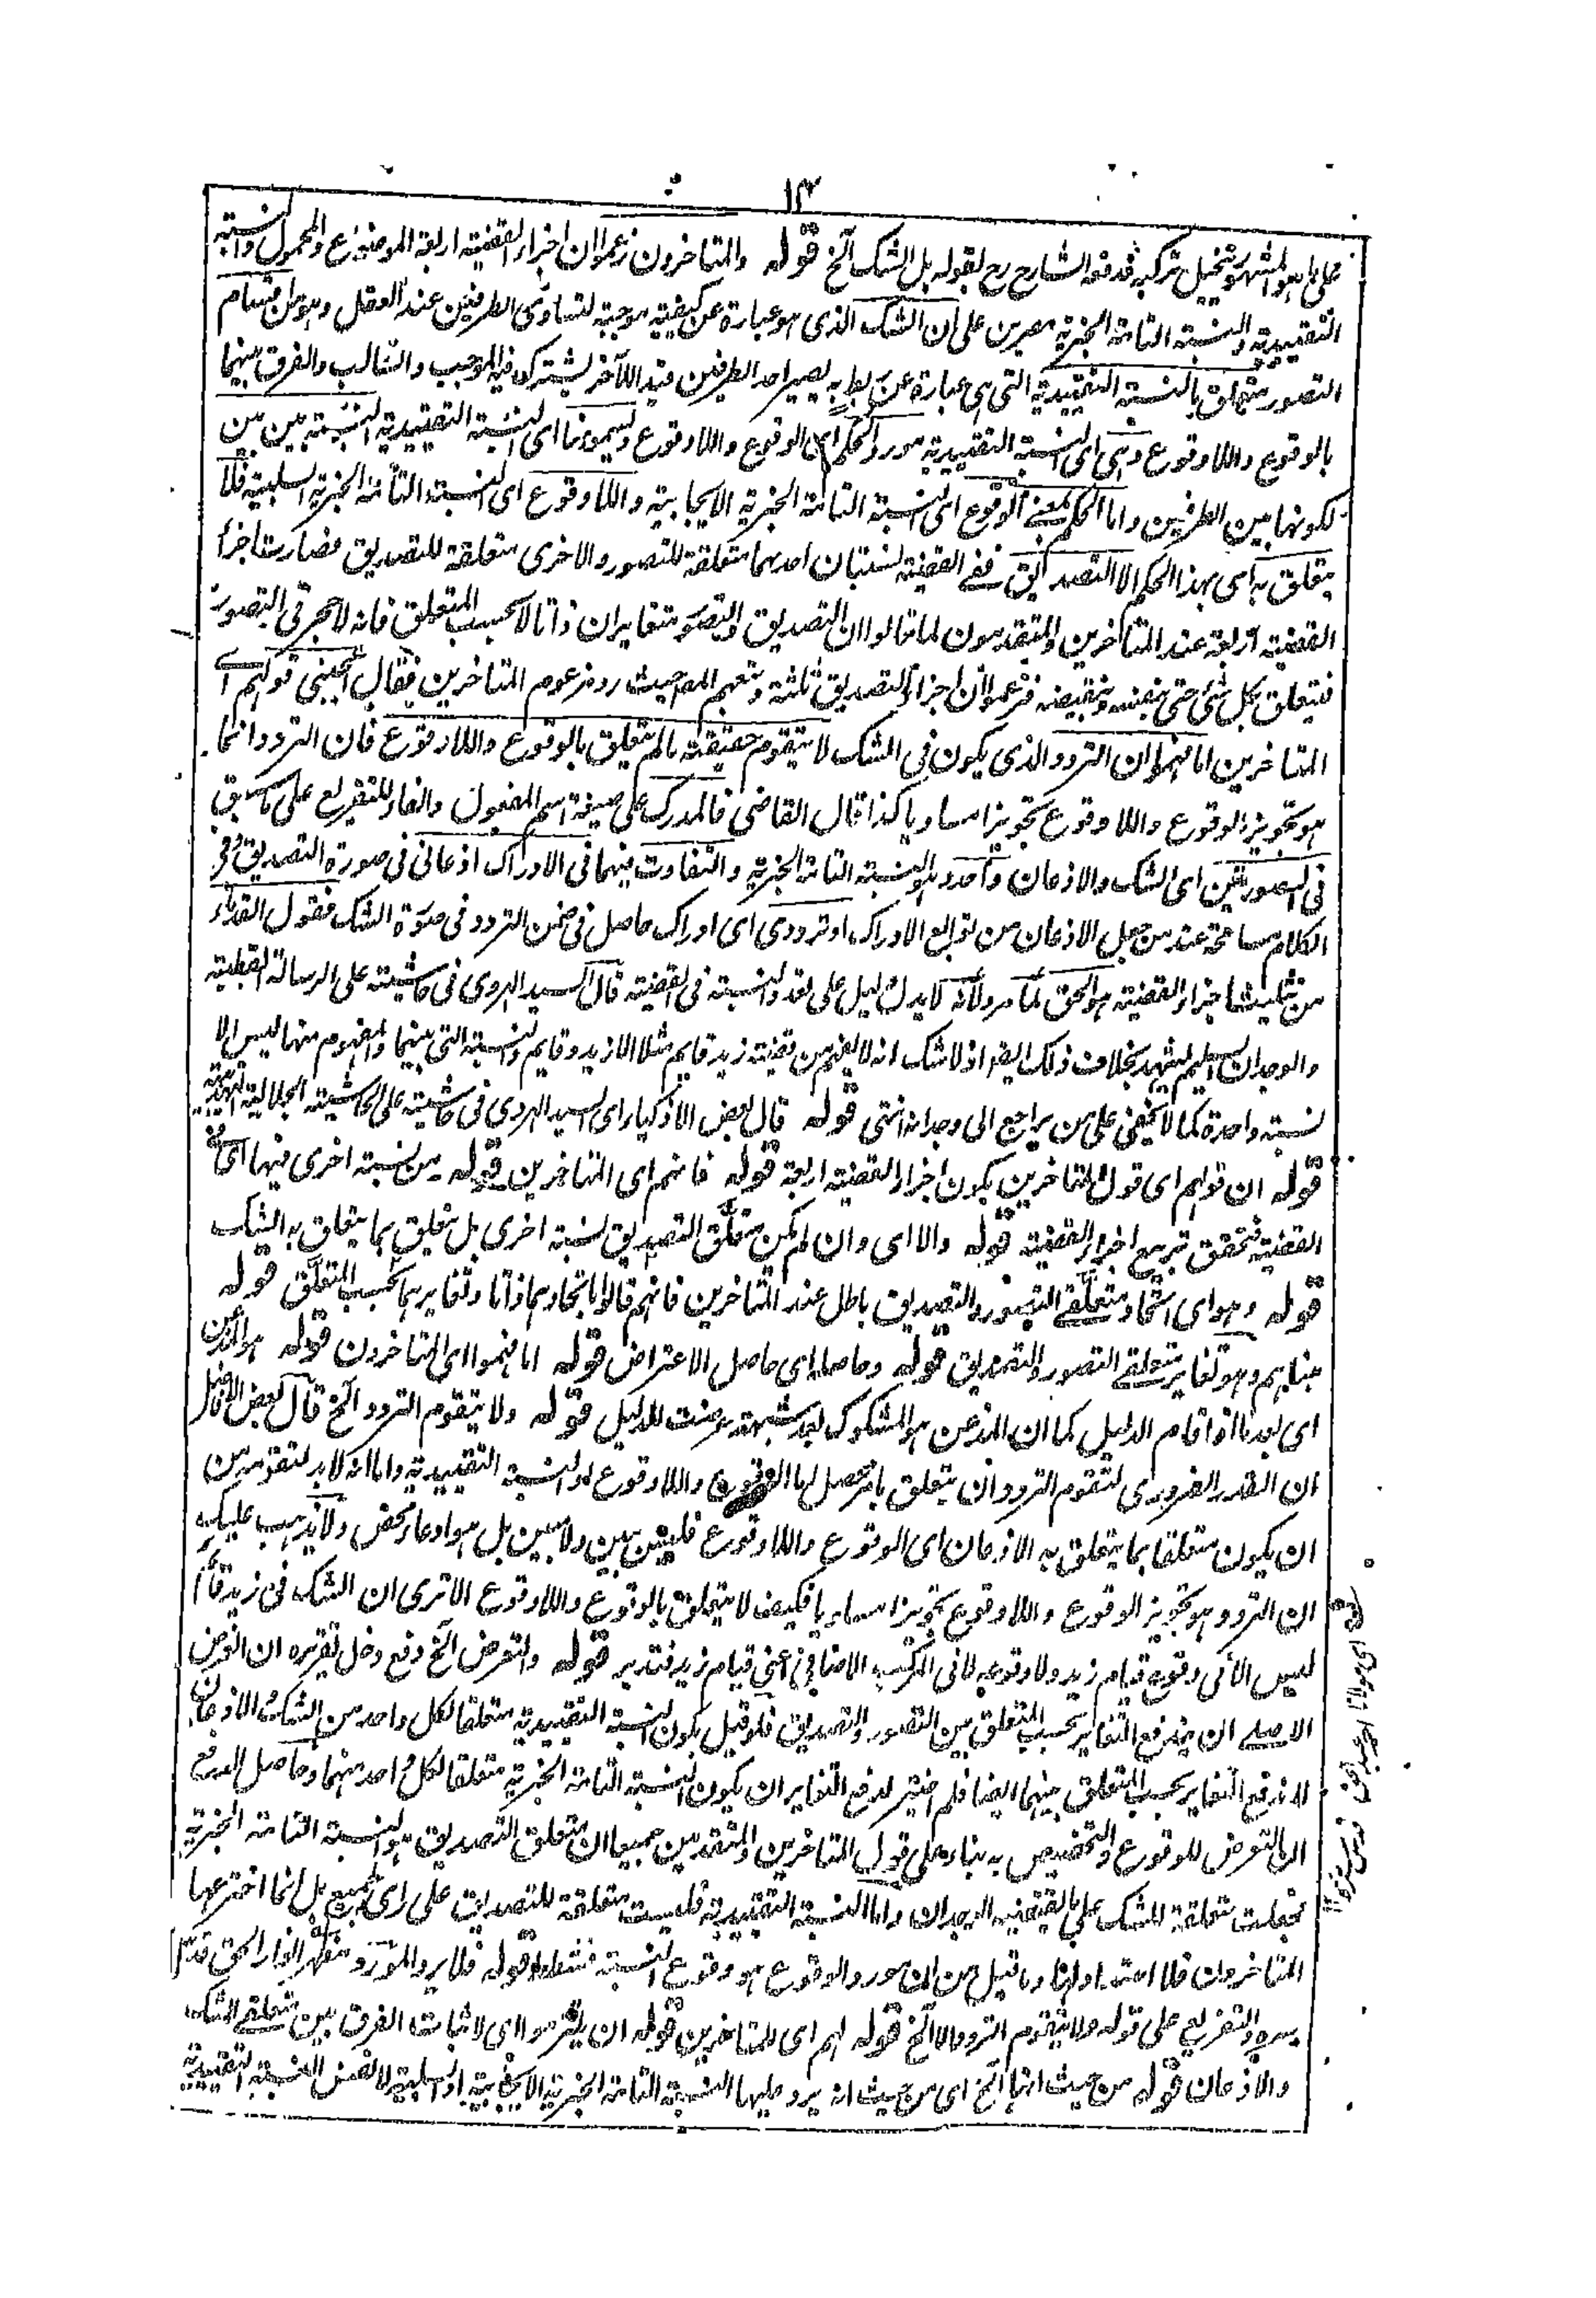 ١٣
على ما هو المشهور تخيل تركبه فدفعه الشارح رح بقوله بل الشك آلخ قوله والمتاخرون زعموا ان اجزاء القضية اربعة الموضوع والمحمول والنسبة
التقييدية والنسبة التامة الخبرية مصرين على ان الشك الذى هو عبارة عن كيفية موجبة لتساوى الطرفين عند العقل وهو من اقسام
التصور متعلق بالنسبة التقييدية التى هى عبارة عن ربط به يصير احد الطرفين قيدا للآخر يشترك فيه الموجب والسالب والفرق بينهما
بالوقوع واللاوقوع وهى اى النسبة التقييدية مورد الحكم اى الوقوع واللاوقوع ويسمونها اى النسبة التقييدية النسبة بين بين
لكونها بين الطرفين واما الحكم بمعنى الوقوع اى النسبة التامة الخبرية الايجابية واللاوقوع اى النسبة التامة الخبرية السلبية فلا
يتعلق به اى بهذا الحكم الا التصديق ففى القضية نسبتان احدهما متعلقة للتصور والاخرى متعلقة للتصديق فصارت اجزاء
القضية اربعة عند المتاخرين والمتقدمون لما قالوا ان التصديق والتصور متغايران ذاتا لا بحسب المتعلق فانه لا حجر فى التصور
فيتعلق بكل شئ حتى بنفسه ونقيضه فزعموا ان اجزاء التصديق ثلثة وتبعهم المص حيث رد مزعوم المتاخرين فقال اعجبنى قولهم اے
المتاخرين اما فهموا ان التردد الذى يكون فى الشك لا يتقوم حقيقته ما لم يتعلق بالوقوع واللاوقوع فان التردد انما
هو تجويز الوقوع واللاوقوع تجويزا مساويا كذا قال القاضى فالمدرك على صيغة اسم المفعول والفاء للتفريع على ما سبق
فى الصورتين اى الشك والاذعان واحد وهو النسبة التامة الخبرية والتفاوت بينهما فى الادراك اذعانى فى صورة التصديق وفى
الكلام مسامحة عند من جعل الاذعان من توابع الادراك او ترددى اى ادراك حاصل فى ضمن التردد فى صورة الشك فقول القدماء
من تثليث اجزاء القضية هو الحق لما مر ولانه لا يدل دليل على تعدد النسبة فى القضية قال السيد الهروى فى حاشيته على الرسالة القطبية
والوجدان السليم يشهد بخلاف ذلك ايضا اذ لا شك انه لا يفهم من قضية زيد قايم مثلا الا زيد وقايم والنسبة التى بينهما والمفهوم منها ليس الا
نسبة واحدة كما لا يخفى على من يراجع الى وجدانه انتهى قوله قال بعض الاذكياء اى السيد الهروى فى حاشيته على الحاشية الجلالية التهذيبية
قوله ان قولهم اى قول المتاخرين بكون اجزاء القضية اربعة قوله فانهم اى المتاخرين قوله من نسبة اخرى فيها اى فى
القضية فتحقق تربيع اجزاء القضية قوله والا اى وان لم يكن متعلق التصديق نسبة اخرى بل يتعلق بما يتعلق به الشك
قوله وهو اى اتحاد متعلقى التصور والتصديق باطل عند المتاخرين فانهم قالوا باتحادهما ذاتا وتغايرهما بحسب المتعلق قوله
مبناهم وهو تغاير متعلقى التصور والتصديق قوله وحاصله اى حاصل الاعتراض قوله اما فهموا اى المتاخرون قوله هو المذعن
اى بعد ما اذا اقام الدليل كما ان المذعن هو المشكوك بعد شبهة عرضت للدليل قوله ولا يتقوم التردد آلخ قال بعض الافاضل
ان القدر الضرورى لتقوم التردد ان يتعلق بامر محصل لها الوقوع واللاوقوع او النسبة التقييدية واما انه لا بد لتقومه من
ان يكون متعلقا بما يتعلق به الاذعان اى الوقوع واللاوقوع فليس ببين ولا مبين بل هو ادعاء محض ولا يذهب عليك
ان التردد هو تجويز الوقوع واللاوقوع تجويزا مساويا فكيف لا يتعلق بالوقوع واللاوقوع الا ترى ان الشك فى زيد قائم
ليس الا فى وقوع قيام زيد ولا وقوعه لا فى المركب الاضافى اعنى قيام زيد فتدبر قوله والتعرض آلخ دفع دخل تقريره ان الغرض
الاصلے ان يندفع التغاير بحسب المتعلق بين التصور والتصديق فلو قيل بكون النسبة التقييدية متعلقا لكل واحد من الشك والاذعان
لاندفع التغاير بحسب المتعلق بينهما ايضا فلم اختير لدفع التغاير ان يكون النسبة التامة الخبرية متعلقا لكل واحد منهما وحاصل الدفع
ان التعرض للوقوع والتخصيص به بناء على قول المتاخرين والمتقدمين جميعا ان متعلق التصديق هو النسبة التامة الخبرية
فجعلت متعلقة للشك على ما يقتضيه الوجدان واما النسبة التقييدية فليست متعلقة للتصديق على راى الجميع بل انما اخترعها
المتاخرون فلا اعتداد لها وما قيل من ان مورد الوقوع هو وقوع النسبة فشطط قوله فلا يرد المورد مظهر انوار الحق قدس
سره والتفريع على قوله ولا يتقوم التردد الا آلخ قوله لهم اى للمتاخرين قوله ان يلتزموا اى لاثبات الفرق بين متعلقى الشك
والاذعان قوله من حيث انها آلخ اى من حيث انه يرد عليها النسبة التامة الخبرية الايجابية او السلبية لا نفس النسبة التقييدية